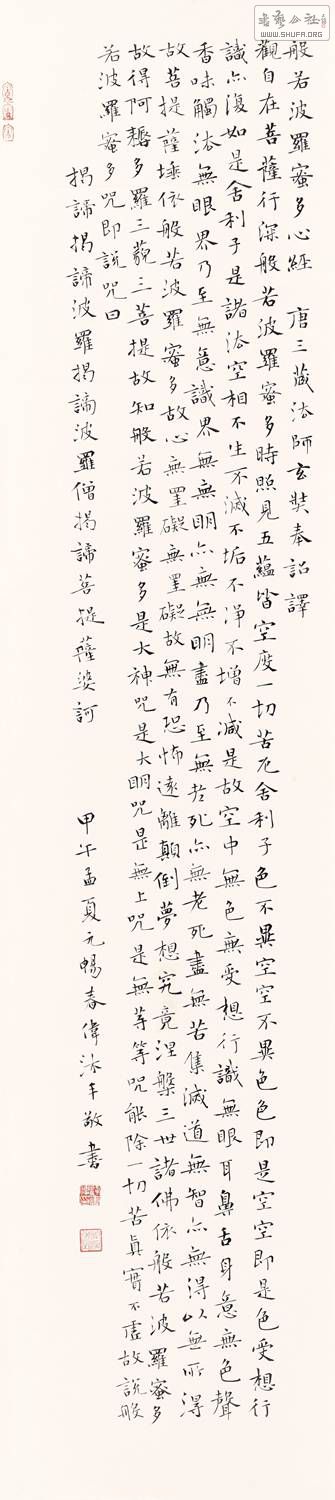 書藝公社
WWW.SHUFA.ORG
般若波羅蜜多心經 唐三藏法師玄奘奉詔譯
觀自在菩薩行深般若波羅蜜多時照見五蘊皆空度一切苦厄舍利子色不異空空不異色色即是空空即是色受想行
識亦復如是舍利子是諸法空相不生不滅不垢不淨不增不減是故空中無色無受想行識無眼耳鼻舌身意無色聲
香味觸法無眼界乃至無意識界無無明亦無無明盡乃至無老死亦無老死盡無苦集滅道無智亦無得以無所得
故菩提薩埵依般若波羅蜜多故心無罣礙無罣礙故無有恐怖遠離顛倒夢想究竟涅槃三世諸佛依般若波羅蜜多
故得阿耨多羅三藐三菩提故知般若波羅蜜多是大神咒是大明咒是無上咒是無等等咒能除一切苦真實不虛故說般
若波羅蜜多咒即說咒曰
揭諦揭諦波羅揭諦波羅僧揭諦菩提薩婆訶 甲午孟夏元暢春偉沐手敬書